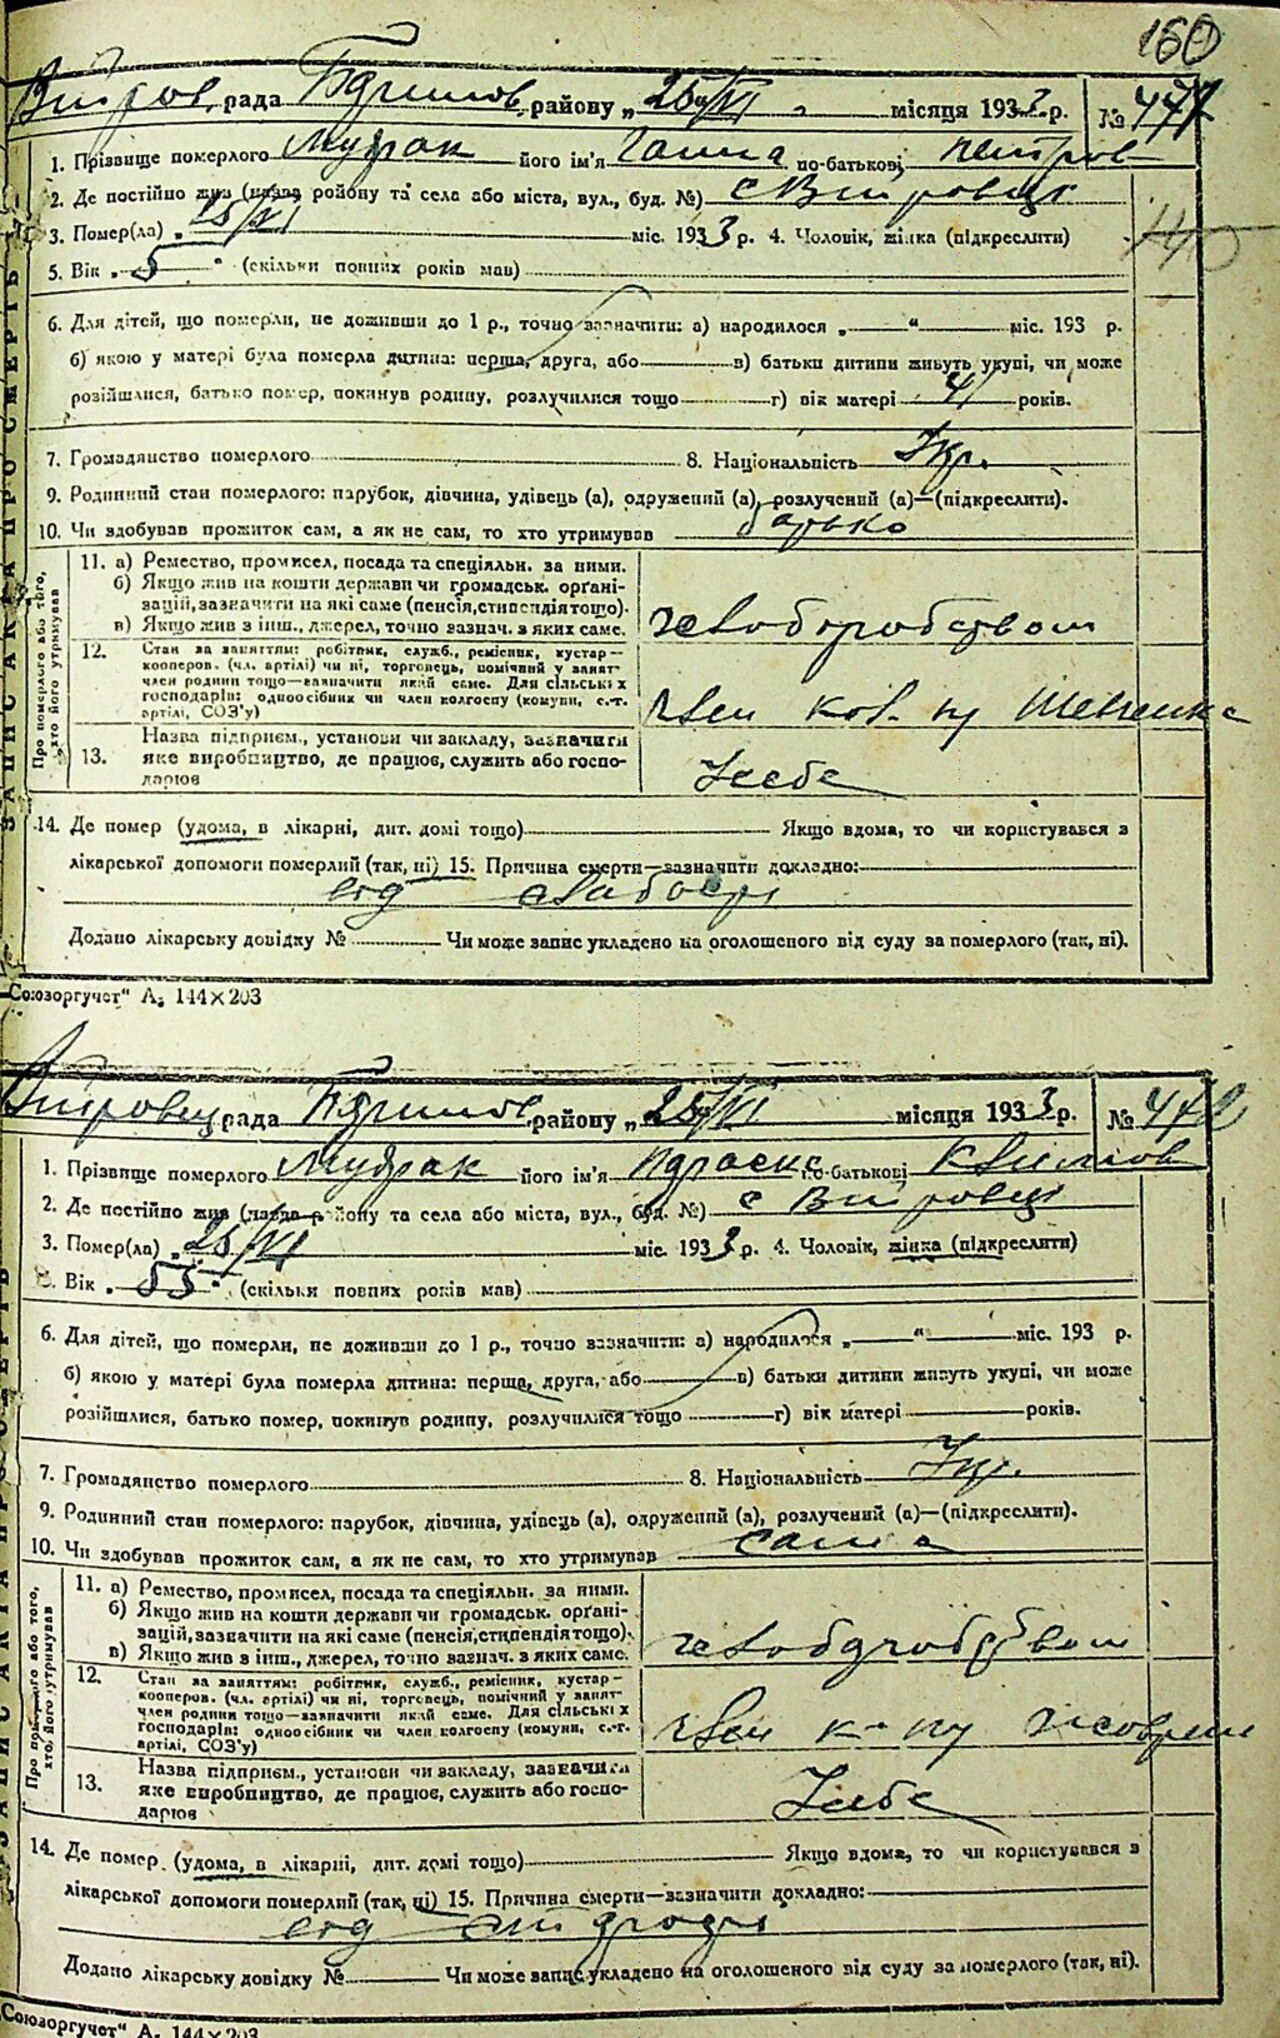 160
рада району „ 26/VI місяця 1933 р. №
1. Прізвище померлого Мудрак його ім'я Ганна по-батькові Петров
2. Де постійно жив (назва району та села або міста, вул., буд. №) с
3. Помер(ла) „ 25/VI міс. 1933 р. 4. Чоловік, жінка (підкреслити)
5. Вік „ 5 " (скільки повних років мав)
6. Для дітей, що померли, не доживши до 1 р., точно зазначити: а) народилося „ “ міс. 193 р.
б) якою у матері була померла дитина: перша, друга, або в) батьки дитини живуть укупі, чи може
розійшлися, батько помер, покинув родину, розлучилися тощо г) вік матері років.
7. Громадянство померлого 8. Національність Укр.
9. Родинний стан померлого: парубок, дівчина, удівець (а), одружений (а), розлучений (а)—(підкреслити).
10. Чи здобував прожиток сам, а як не сам, то хто утримував батько
ЗАПИС АКТА ПРО СМЕРТЬ
Про померлого або того, хто його утримував
11. а) Ремество, промисел, посада та спеціяльн. за ними.
б) Якщо жив на кошти держави чи громадськ. орґані-
зацій, зазначити на які саме (пенсія, стипендія тощо).
в) Якщо жив з інш., джерел, точно зазнач. з яких саме.
хлiборобством
12. Стан за заняттям: робітник, службу., ремісник, кустар—
кооперов. (чл. артілі) чи ні, торговець, помічний у занят-
член родини тощо—зазначити який саме. Для сільських
господарів: одноосібник чи член колгоспу (комуни, с.-г.
артілі, СОЗ'у)
член кол.
13. Назва підприєм., установи чи закладу, зазначити
яке виробництво, де працює, служить або госпо-
дарює
У себе
14. Де помер (удома, в лікарні, дит. домі тощо) Якщо вдома, то чи користувався з
лікарської допомоги померлий (так, ні) 15. Причина смерти—зазначити докладно:
від слабості
Додано лікарську довідку № Чи може запис укладено на оголошеного від суду за померлого (так, ні).
Союзоргучет“ А₅ 144×203
рада району „ 26/VI місяця 1933 р. № 472
1. Прізвище померлого Мудрак його ім'я по-батькові
2. Де постійно жив (назва району та села або міста, вул., буд. №) с
3. Помер(ла) „ 25/VI міс. 1933 р. 4. Чоловік, жінка (підкреслити)
5. Вік „ 55 “ (скільки повних років мав)
6. Для дітей, що померли, не доживши до 1 р., точно зазначити: а) народилося „ “ міс. 193 р.
б) якою у матері була померла дитина: перша, друга, або в) батьки дитини живуть укупі, чи може
розійшлися, батько помер, покинув родину, розлучилися тощо г) вік матері років.
7. Громадянство померлого 8. Національність Укр.
9. Родинний стан померлого: парубок, дівчина, удівець (а), одружений (а), розлучений (а)—(підкреслити).
10. Чи здобував прожиток сам, а як не сам, то хто утримував сама
Про померлого або того, хто його утримував
11. а) Ремество, промисел, посада та спеціяльн. за ними.
б) Якщо жив на кошти держави чи громадськ. орґані-
зацій, зазначити на які саме (пенсія, стипендія тощо).
в) Якщо жив з інш., джерел, точно зазнач. з яких саме.
12. Стан за заняттям: робітник, служб., ремісник, кустар—
кооперов. (чл. артілі) чи ні, торговець, помічний у занят-
член родини тощо—зазначити який саме. Для сільських
господарів: одноосібник чи член колгоспу (комуни, с.-г.
артілі, СОЗ'у)
член
13. Назва підприєм., установи чи закладу, зазначити
яке виробництво, де працює, служить або госпо-
дарює
У себе
14. Де помер (удома, в лікарні, дит. домі тощо) Якщо вдома, то чи користувався з
лікарської допомоги померлий (так, ні) 15. Причина смерти—зазначити докладно:
від
Додано лікарську довідку № Чи може запис укладено на оголошеного від суду за померлого (так, ні).
„Союзоргучет“ А₅ 144×203